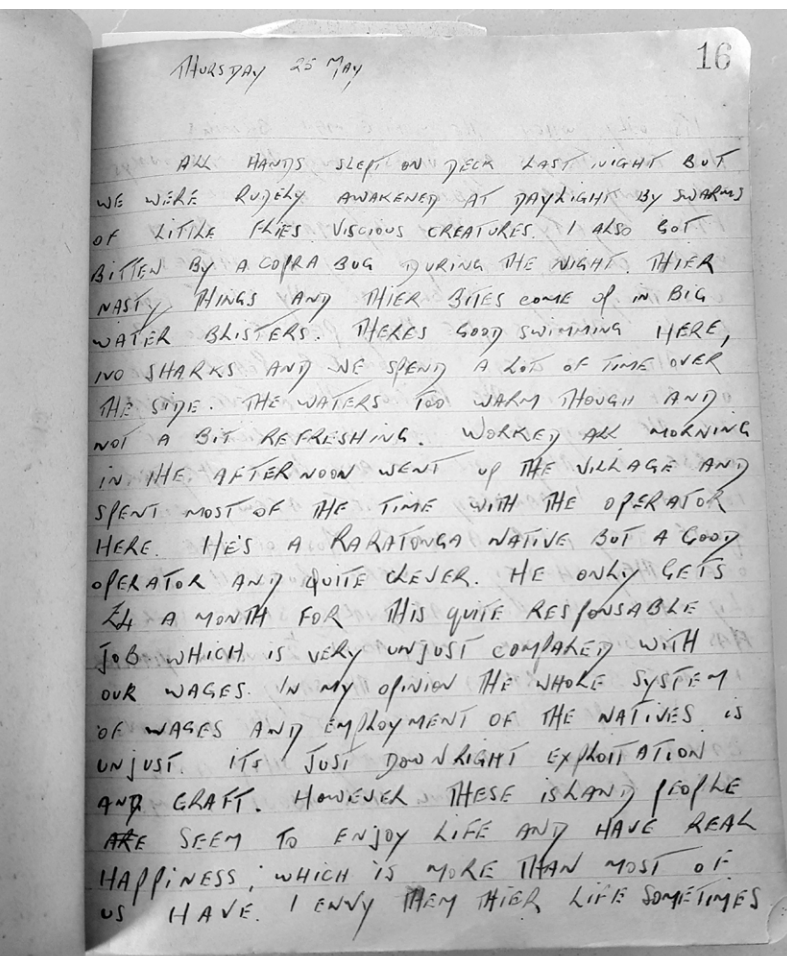 16
THURSDAY 25 MAY
ALL HANDS SLEPT ON DECK LAST NIGHT BUT
WE WERE RUDELY AWAKENED AT DAYLIGHT BY SWARMS
OF LITTLE FLIES VISCIOUS CREATURES. I ALSO GOT
BITTEN BY A COPRA BUG DURING THE NIGHT. THIER
NASTY THINGS AND THIER BITES COME UP IN BIG
WATER BLISTERS. THERES GOOD SWIMMING HERE,
NO SHARKS AND WE SPEND A LOTS OF TIME OVER
THE SIDE. THE WATERS TOO WARM THOUGH AND
NOT A BIT REFRESHING. WORKED ALL MORNING
IN THE AFTERNOON WENT UP THE VILLAGE AND
SPENT MOST OF THE TIME WITH THE OPERATOR
HERE. HE'S A RARATONGA NATIVE BUT A GOOD
OPERATOR AND QUITE CLEVER. HE ONLY GETS
£4 A MONTH FOR THIS QUITE RESPONSABLE
JOB WHICH IS VERY UNJUST COMPARED WITH
OUR WAGES. IN MY OPINION THE WHOLE SYSTEM
OF WAGES AND EMPLOYMENT OF THE NATIVES IS
UNJUST. ITS JUST DOWNRIGHT EXPLOITATION
AND GRAFT. HOWEVER THESE ISLAND PEOPLE
ARE SEEM TO ENJOY LIFE AND HAVE REAL
HAPPINESS, WHICH IS MORE THAN MOST OF
US HAVE. I ENVY THEM THIER LIFE SOMETIMES